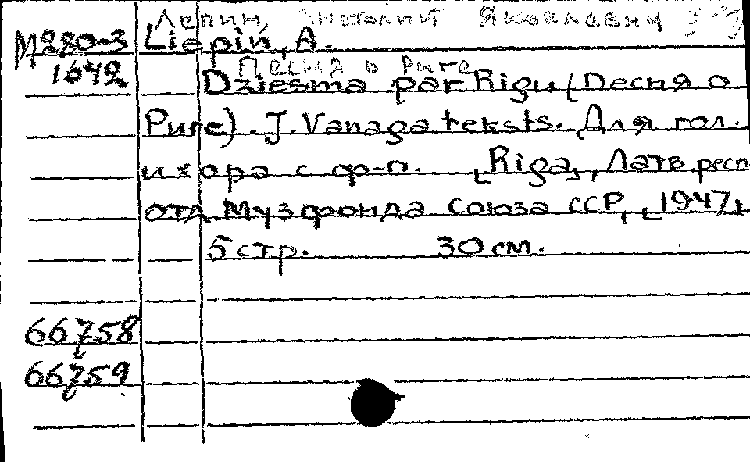 Лепин, Анатолий Яковлевич
М280-3 Liepiń, A.
Песня о Риге
1642 Dziesma par Rigu (Песня о
Риге). J. Vanaga teksts. Для гол.
и хора с ф-п. [Riga], Латв. респ
отд. Музфонда Союза ССР, [1947].
5 стр. 30 см.
66758
66759